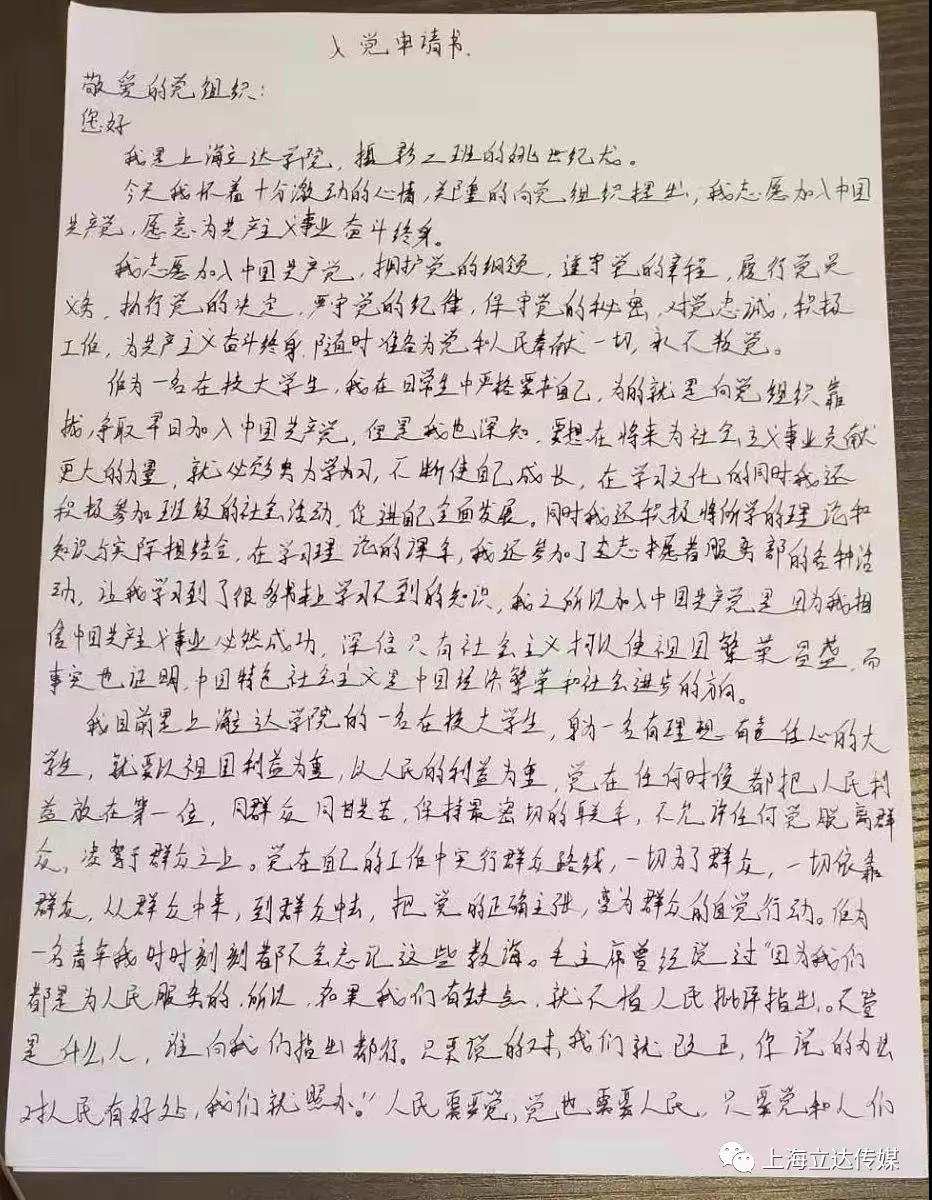 入党申请书.
敬爱的党组织：
您好
我是上海立达学院，摄影二班的姚世纪龙。
今天我怀着十分激动的心情，郑重的向党组织提出；我志愿加入中国
共产党，愿意为共产主义事业奋斗终身。
我志愿加入中国共产党，拥护党的纲领，遵守党的章程，履行党员
义务，执行党的决定，严守党的纪律，保守党的秘密，对党忠诚，积极
工作，为共产主义奋斗终身，随时准备为党和人民奉献一切，永不叛党。
作为一名在校大学生，我在日常生中严格要求自己，为的就是向党组织靠
拢，争取早日加入中国共产党，但是我也深知，要想在将来为社会主义事业贡献
更大的力量，就必须努力学习，不断使自己成长，在学习文化的同时我还
积极参加班级的社会活动，促进自己全面发展。同时我还积极将所学的理论和
知识与实际相结合，在学习理论的课余，我还参加了志愿者服务部的各种活
动，让我学习到了很多书本上学习不到的知识，我之所以加入中国共产党是因为我相
信中国共产主义事业必然成功，深信只有社会主义才可以使祖国繁荣昌盛，而
事实也证明，中国特色社会主义是中国经济繁荣和社会进步的方向。
我目前是上海立达学院的一名在校大学生，身为一名有理想有责任心的大
学生，就要以祖国利益为重，以人民的利益为重，党在任何时候都把人民利
益放在第一位，同群众同甘共苦，保持最密切的联系，不允许任何党脱离群
众，凌驾于群众之上。党在自己的工作中实行群众路线，一切为了群众，一切依靠
群众，从群众中来，到群众中去，把党的正确主张，变为群众的自觉行动。作为
一名青年我时时刻刻都不会忘记这些教诲。毛主席曾经说过“因为我们
都是为人民服务的，所以，如果我们有缺点，就不怕人民批评指出。不管
是什么人，谁向我们指出都行。只要说的对，我们就改正，你说的办法
对人民有好处，我们就照办。”人民需要党，党也需要人民，只要党和人们
上海立达传媒